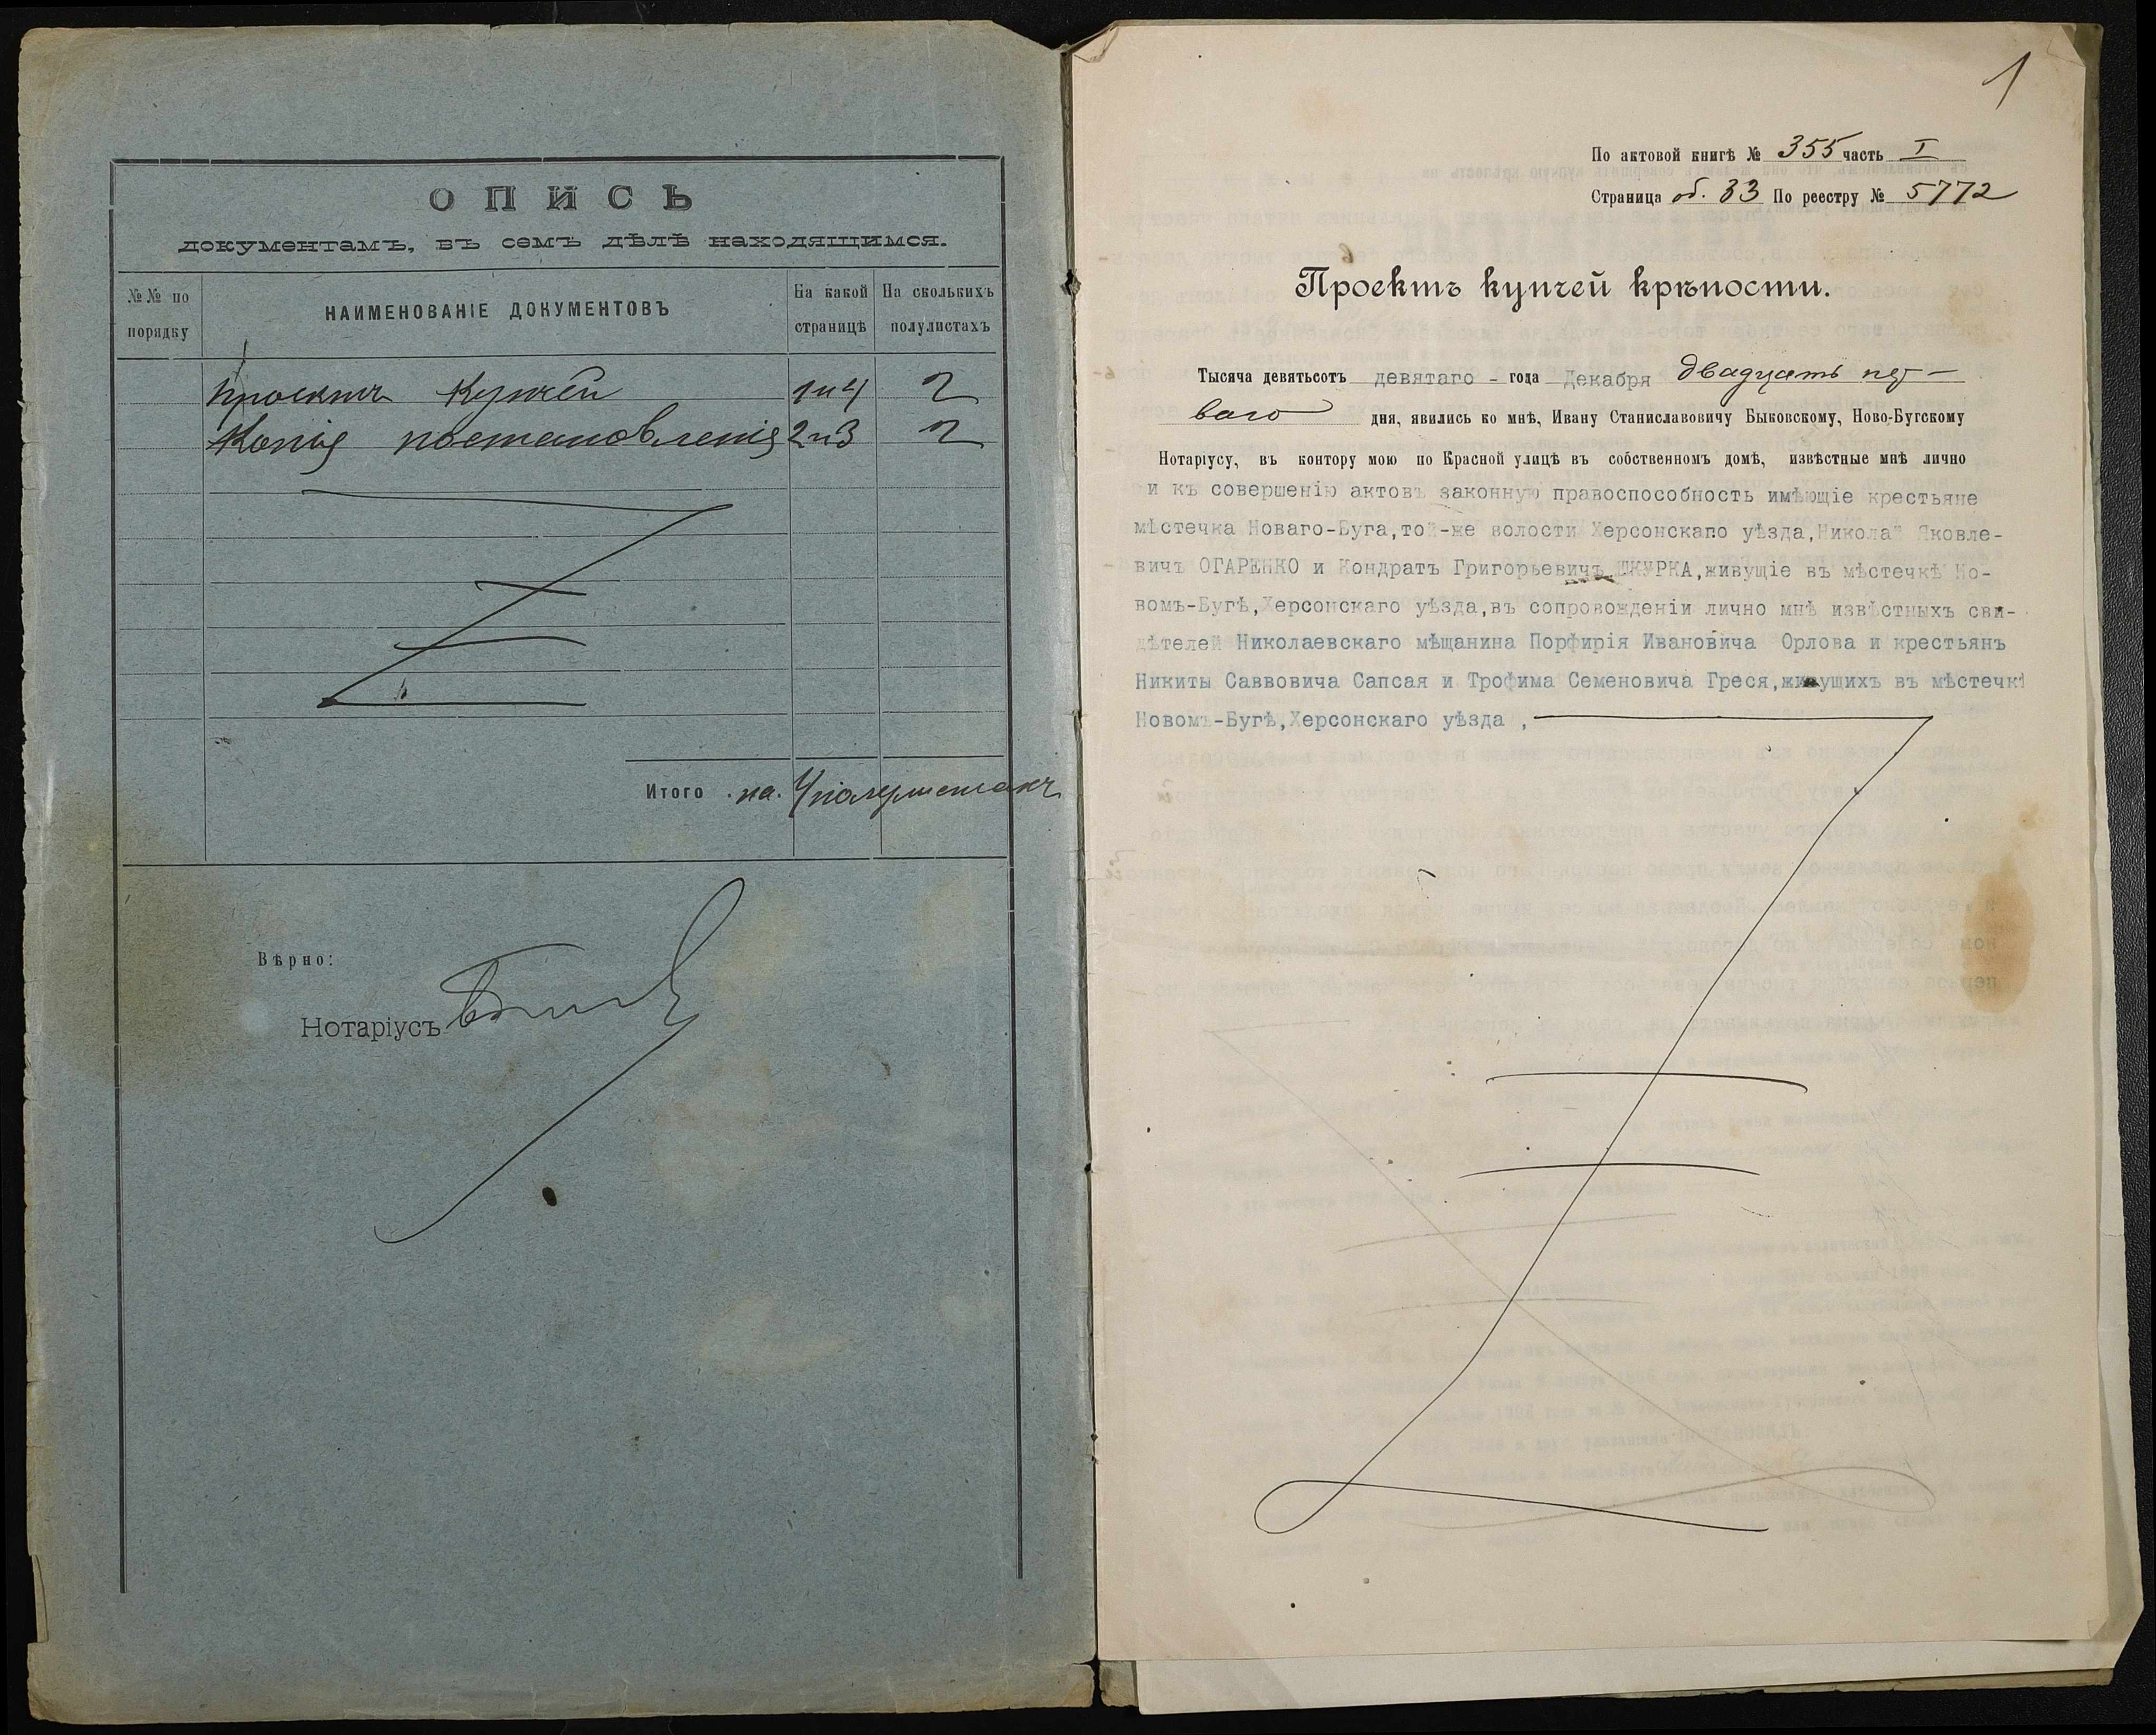 ОПИСЬ
документамъ, въ семъ дѣлѣ находящимся.
№№ по порядку
НАИМЕНОВАНІЕ ДОКУМЕНТОВЪ
На какой страницѣ
На сколькихъ полулистахъ
Проектъ Купчей 1 и 4 2
Копія постановленія 2 и 3 2
Итого на 4 полулистахъ
Вѣрно:
Нотаріусъ
1
По актовой книгѣ № 355 часть I
Страница об. 33 По реестру № 5772
Проектъ купчей крѣпости.
Тысяча девятьсотъ девятаго - года Декабря двадцать пер-
ваго дня, явились ко мнѣ, Ивану Станиславовичу Быковскому, Ново-Бугскому
Нотаріусу, въ контору мою по Красной улицѣ въ собственномъ домѣ, извѣстные мнѣ лично
и къ совершенію актовъ законную правоспособность имѣющіе крестьяне
мѣстечка Новаго-Буга,той-же волости Херсонскапо уѣзда,Николай Яковле-
вичъ ОГАРЕНКО и Кондратъ Григорьевичъ ШКУРКА,живущіе въ мѣстечкѣ Но-
вомъ-Бугѣ,Херсонскаго уѣзда,въ сопровожденіи лично мнѣ извѣстныхъ сви-
дѣтелей Николаевскаго мѣщанина Порфирія Ивановича Орлова и крестьянъ
Никиты Саввовича Сапсая и Трофима Семеновича Греся,живущихъ въ мѣстечкѣ
Новомъ-Бугѣ,Херсонскаго уѣзда ,